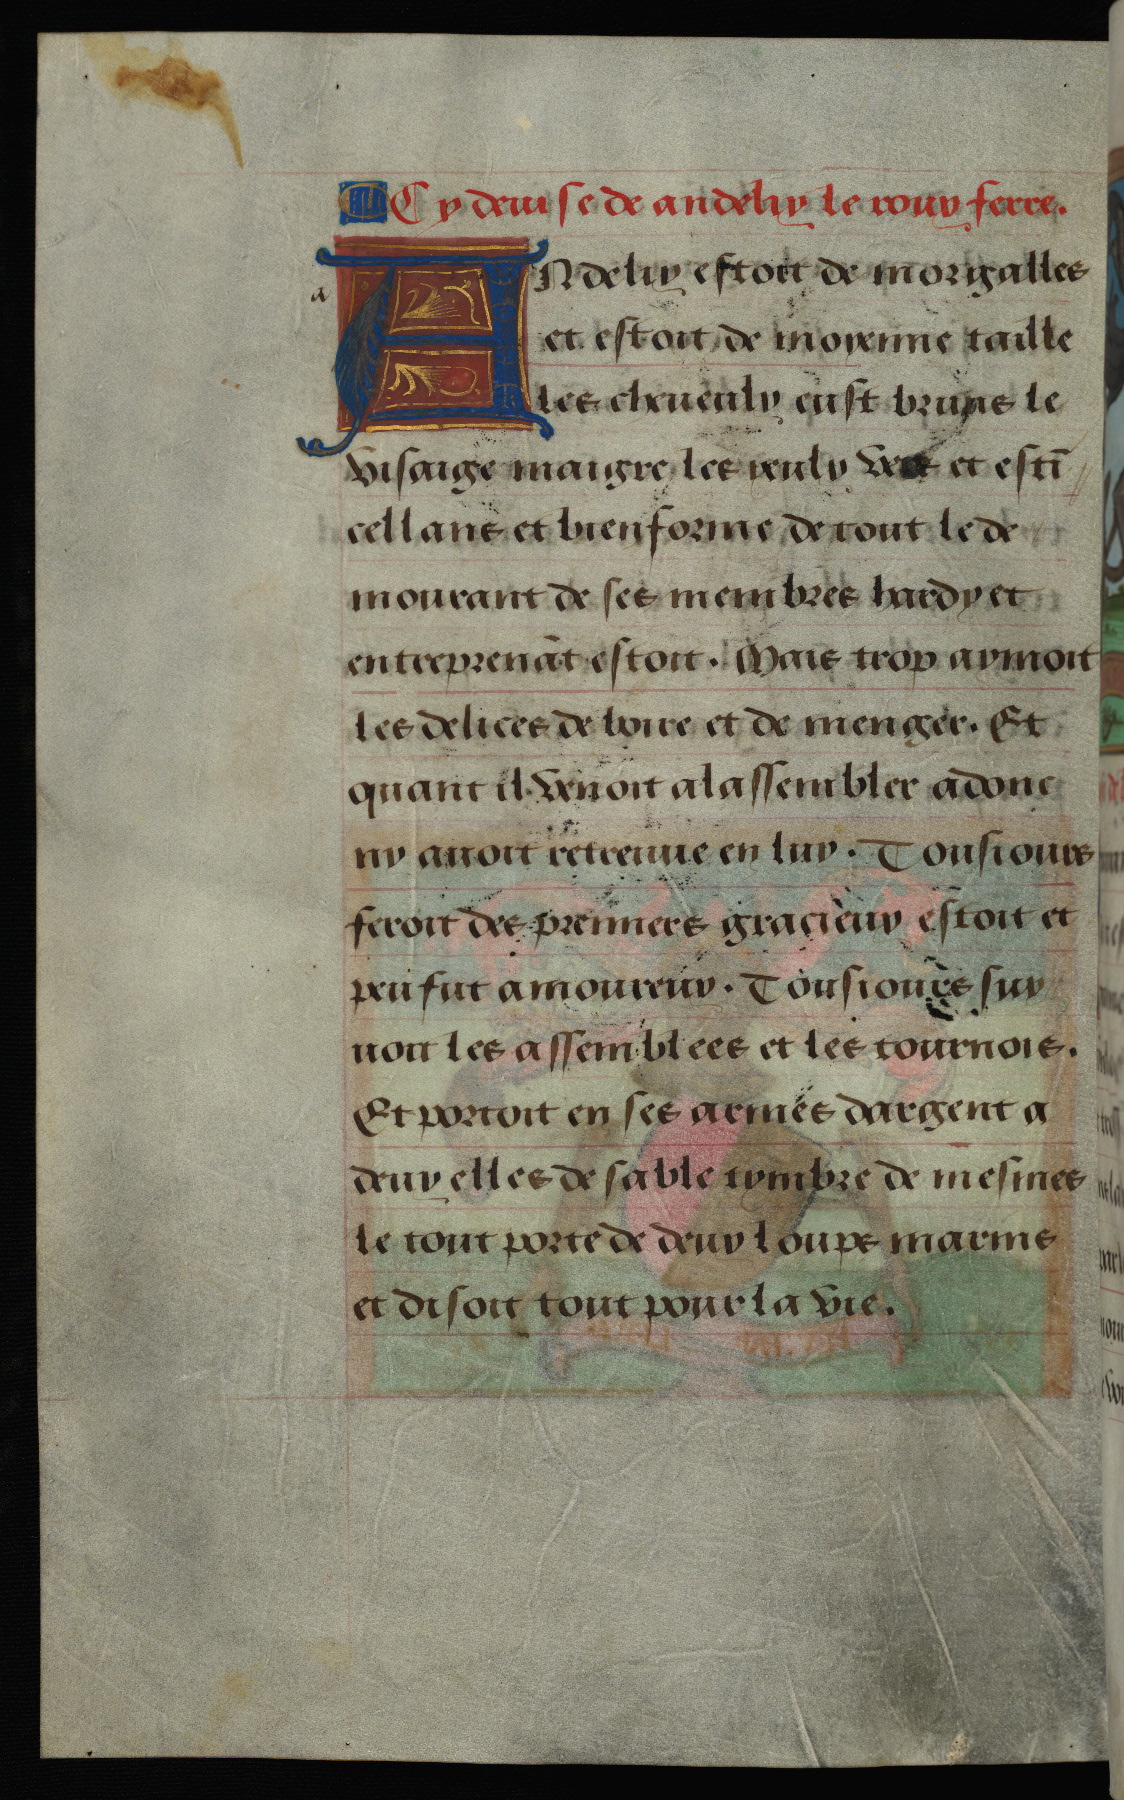 Cy deuise de andeliz le roux ferre.
a
ANdeliz estoit de morigalles
et estoit de moyenne taille
les cheueulx eust bruns le
visaige maigre les yeulx vers et esti
cellans et bien forme de tout le de
mourant de ses membres hardy et
entreprenāt estoit. Mais trop aymoit
les delices de boire et de menger. Et
quant il venoit a lassembler adonc
ny auoit retenue en luy. Tousiours
feroit des premiers gracieux estoit et
peu fut amoureux. Tousiours suy
uoit les assemblees et les tournois.
Et portoit en ses armes dargent a
deux elles de sable tymbre de mesmes
le tout porte de deux loups marins
et disoit tout pour la vie.